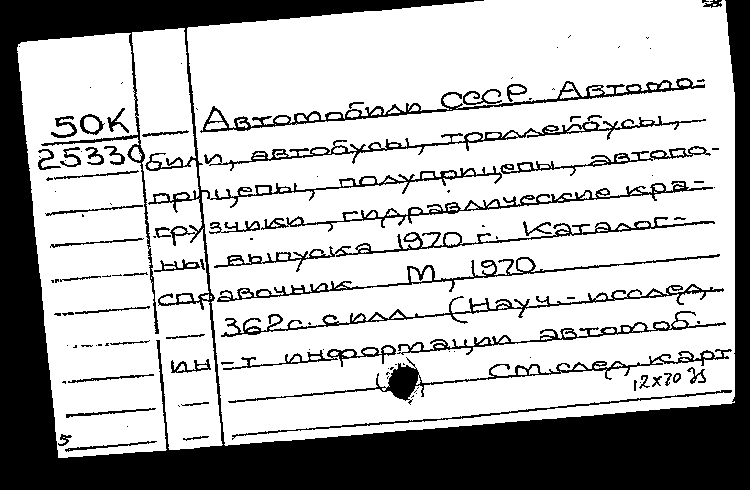 50К
25330
Автомобили СССР. Автомо-
били, автобусы, троллейбусы,
прицепы, полуприцепы, автопо-
грузчики, гидравлические кра-
ны выпуска 1970 г. Каталог-
справочник. М, 1970.
362с. с илл. (Науч.-исслед.
ин-т информации автомоб.
См.след. карт
12x70
5